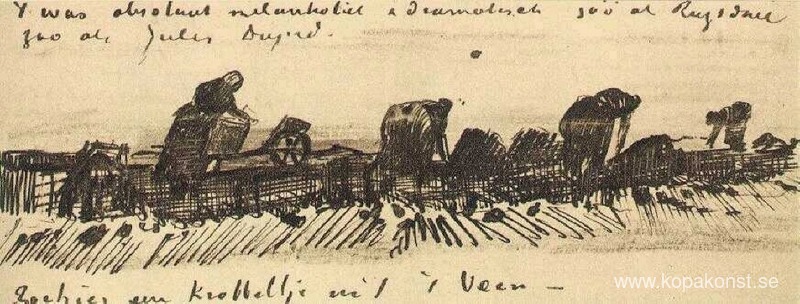 't was absoluut melankoliek & dramatisch zóó als Ruysdael
zoo als Jules Dupré.
Zoehier een krabbeltje uit 't Veen —
www.kopakonst.se